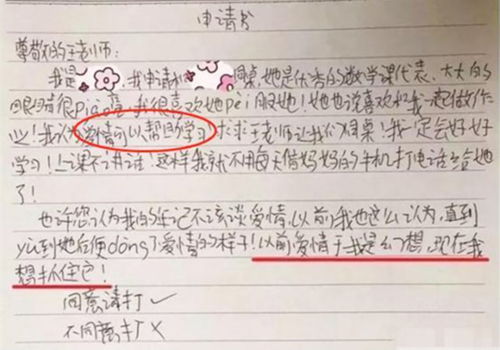 申请书
尊敬的王老师:
我是 ,我申请和 同桌,她是优秀的数学课代表、大大的
眼睛很piao亮,我很喜欢她pei服她!她也说喜欢和我一起做作
业!我认为爱情可以帮助学习求求王老师让我们同桌!我一定会好好
学习!上课不讲话!这样我就不用每天借妈妈的手机打电话给她
了!
也许您认为我的年记不该谈爱情,以前我也这么认为,直到
yù到她后便dong了爱情的样子!以前爱情于我是幻想,现在我
想抓住它!
同意请打✓
不同意打×